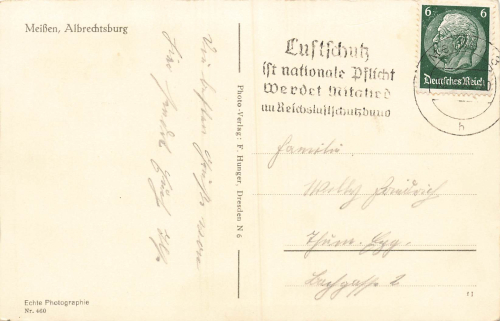 Meißen, Albrechtsburg
Die besten Grüße von
Photo-Verlag: F. Hunger, Dresden N 6
Echte Photographie
Nr. 460
Luftschutz
ist nationale Pflicht
Werdet Mitglied
im Reichsluftschutzbund
6 6
Deutsches Reich
h
Familie
Willy Friedrich
Thum. Erzg.
Bachgasse 2